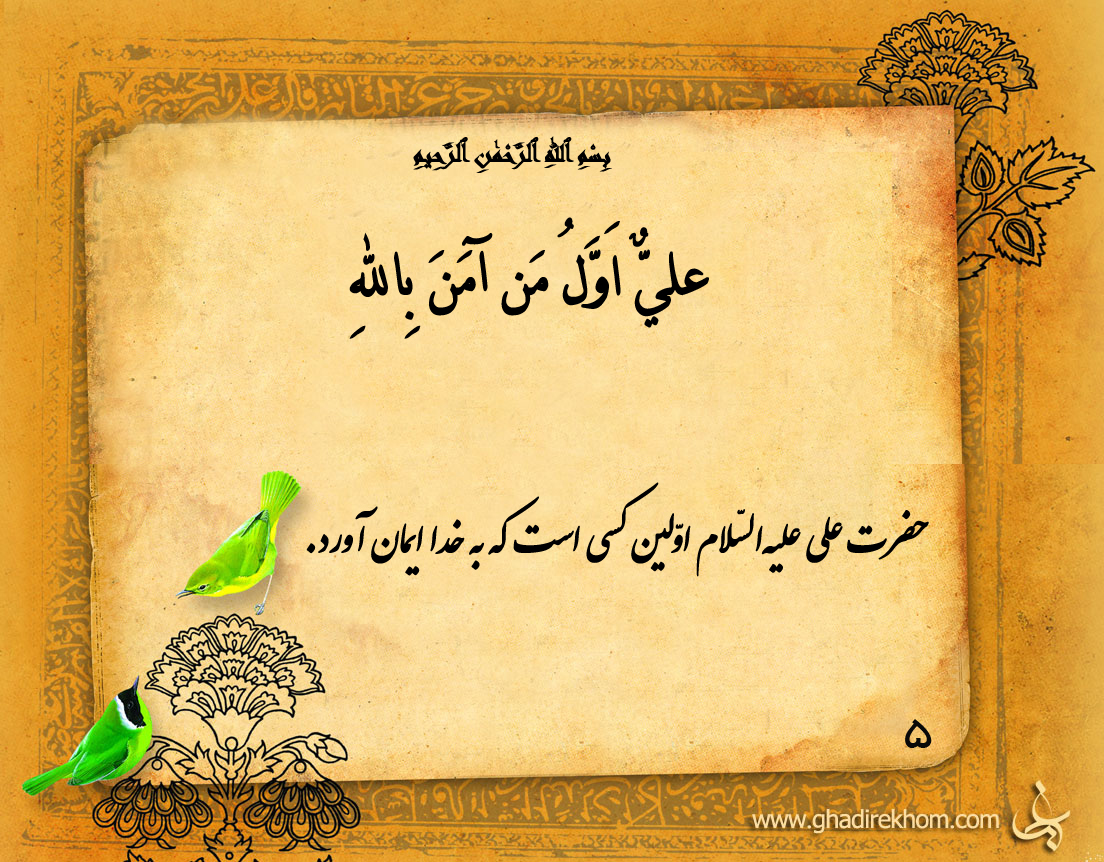 بِسْمِ ٱللَّٰهِ ٱلرَّحْمَٰنِ ٱلرَّحِيمِ
عليٌّ اَوَّلُ مَن آمَنَ بِاللهِ
حضرت علی علیه‌السّلام اوّلین کسی است که به خدا ایمان آورد.
۵
www.ghadirekhom.com